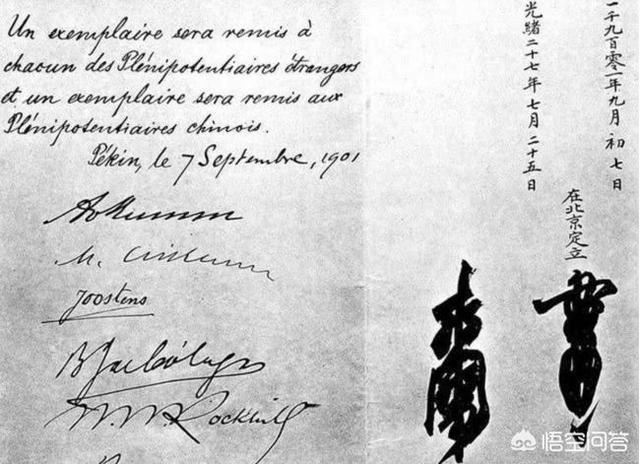 Un exemplaire sera remis à
chacun des Plénipotentiaires étrangers
et un exemplaire sera remis aux
Plénipotentiaires chinois.
Pékin, le 7 Septembre, 1901
Joostens
W. W. Rockhill
一千九百零一年九月初七日
光緒二十七年七月二十五日
在北京定立
悟空问答